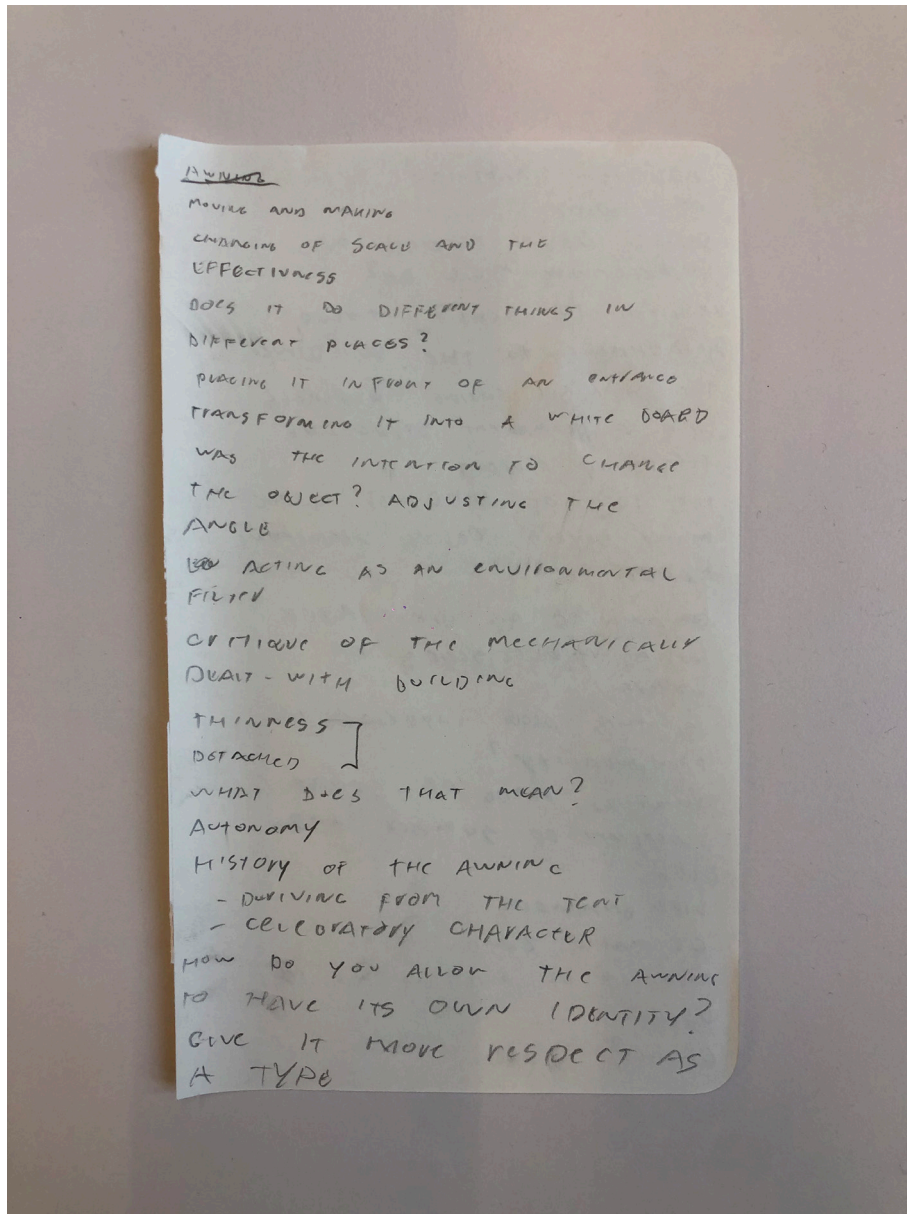 AWNING
MOVING AND MAKING
CHANGING OF SCALE AND THE
EFFECTIVNESS
DOES IT DO DIFFERENT THINGS IN
DIFFERENT PLACES?
PLACING IT IN FRONT OF AN ENTRANCE
TRANSFORMING IT INTO A WHITE BOARD
WAS THE INTENTION TO CHANGE
THE OBJECT? ADJUSTING THE
ANGLE
ACTING AS AN ENVIRONMENTAL
FILTER
CRITIQUE OF THE MECHANICALLY
DEALT-WITH BUILDING
THINNESS
DETACHED
WHAT DOES THAT MEAN?
AUTONOMY
HISTORY OF THE AWNING
- DERIVING FROM THE TENT
- CELEBRATORY CHARACTER
HOW DO YOU ALLOW THE AWNING
TO HAVE ITS OWN IDENTITY?
GIVE IT MORE RESPECT AS
A TYPE